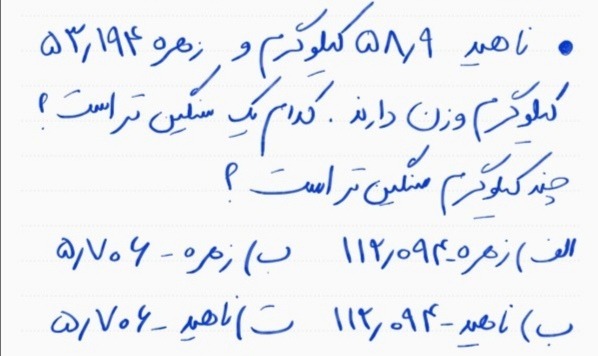 • ناهید ۵۸٫۹ کیلوگرم و زهره ۵۳٫۱۹۴
کیلوگرم وزن دارند. کدام یک سنگین تر است؟
چند کیلوگرم سنگین تر است؟
الف) زهره - ۱۱۲٫۰۹۴ ب) زهره - ۵٫۷۰۶
ب) ناهید - ۱۱۲٫۰۹۴ ت) ناهید - ۵٫۷۰۶